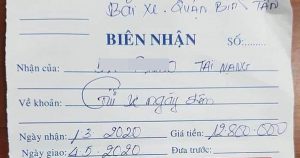 Bãi xe. Quận Bình Tân
BIÊN NHẬN SỐ:
Nhận của: TAI NẠN
Về khoản: Giữ xe ngày đêm
Ngày nhận: 1 3 2020 Giá tiền: 12800.000
Ngày giao: 4 5 2020 Đưa trước: